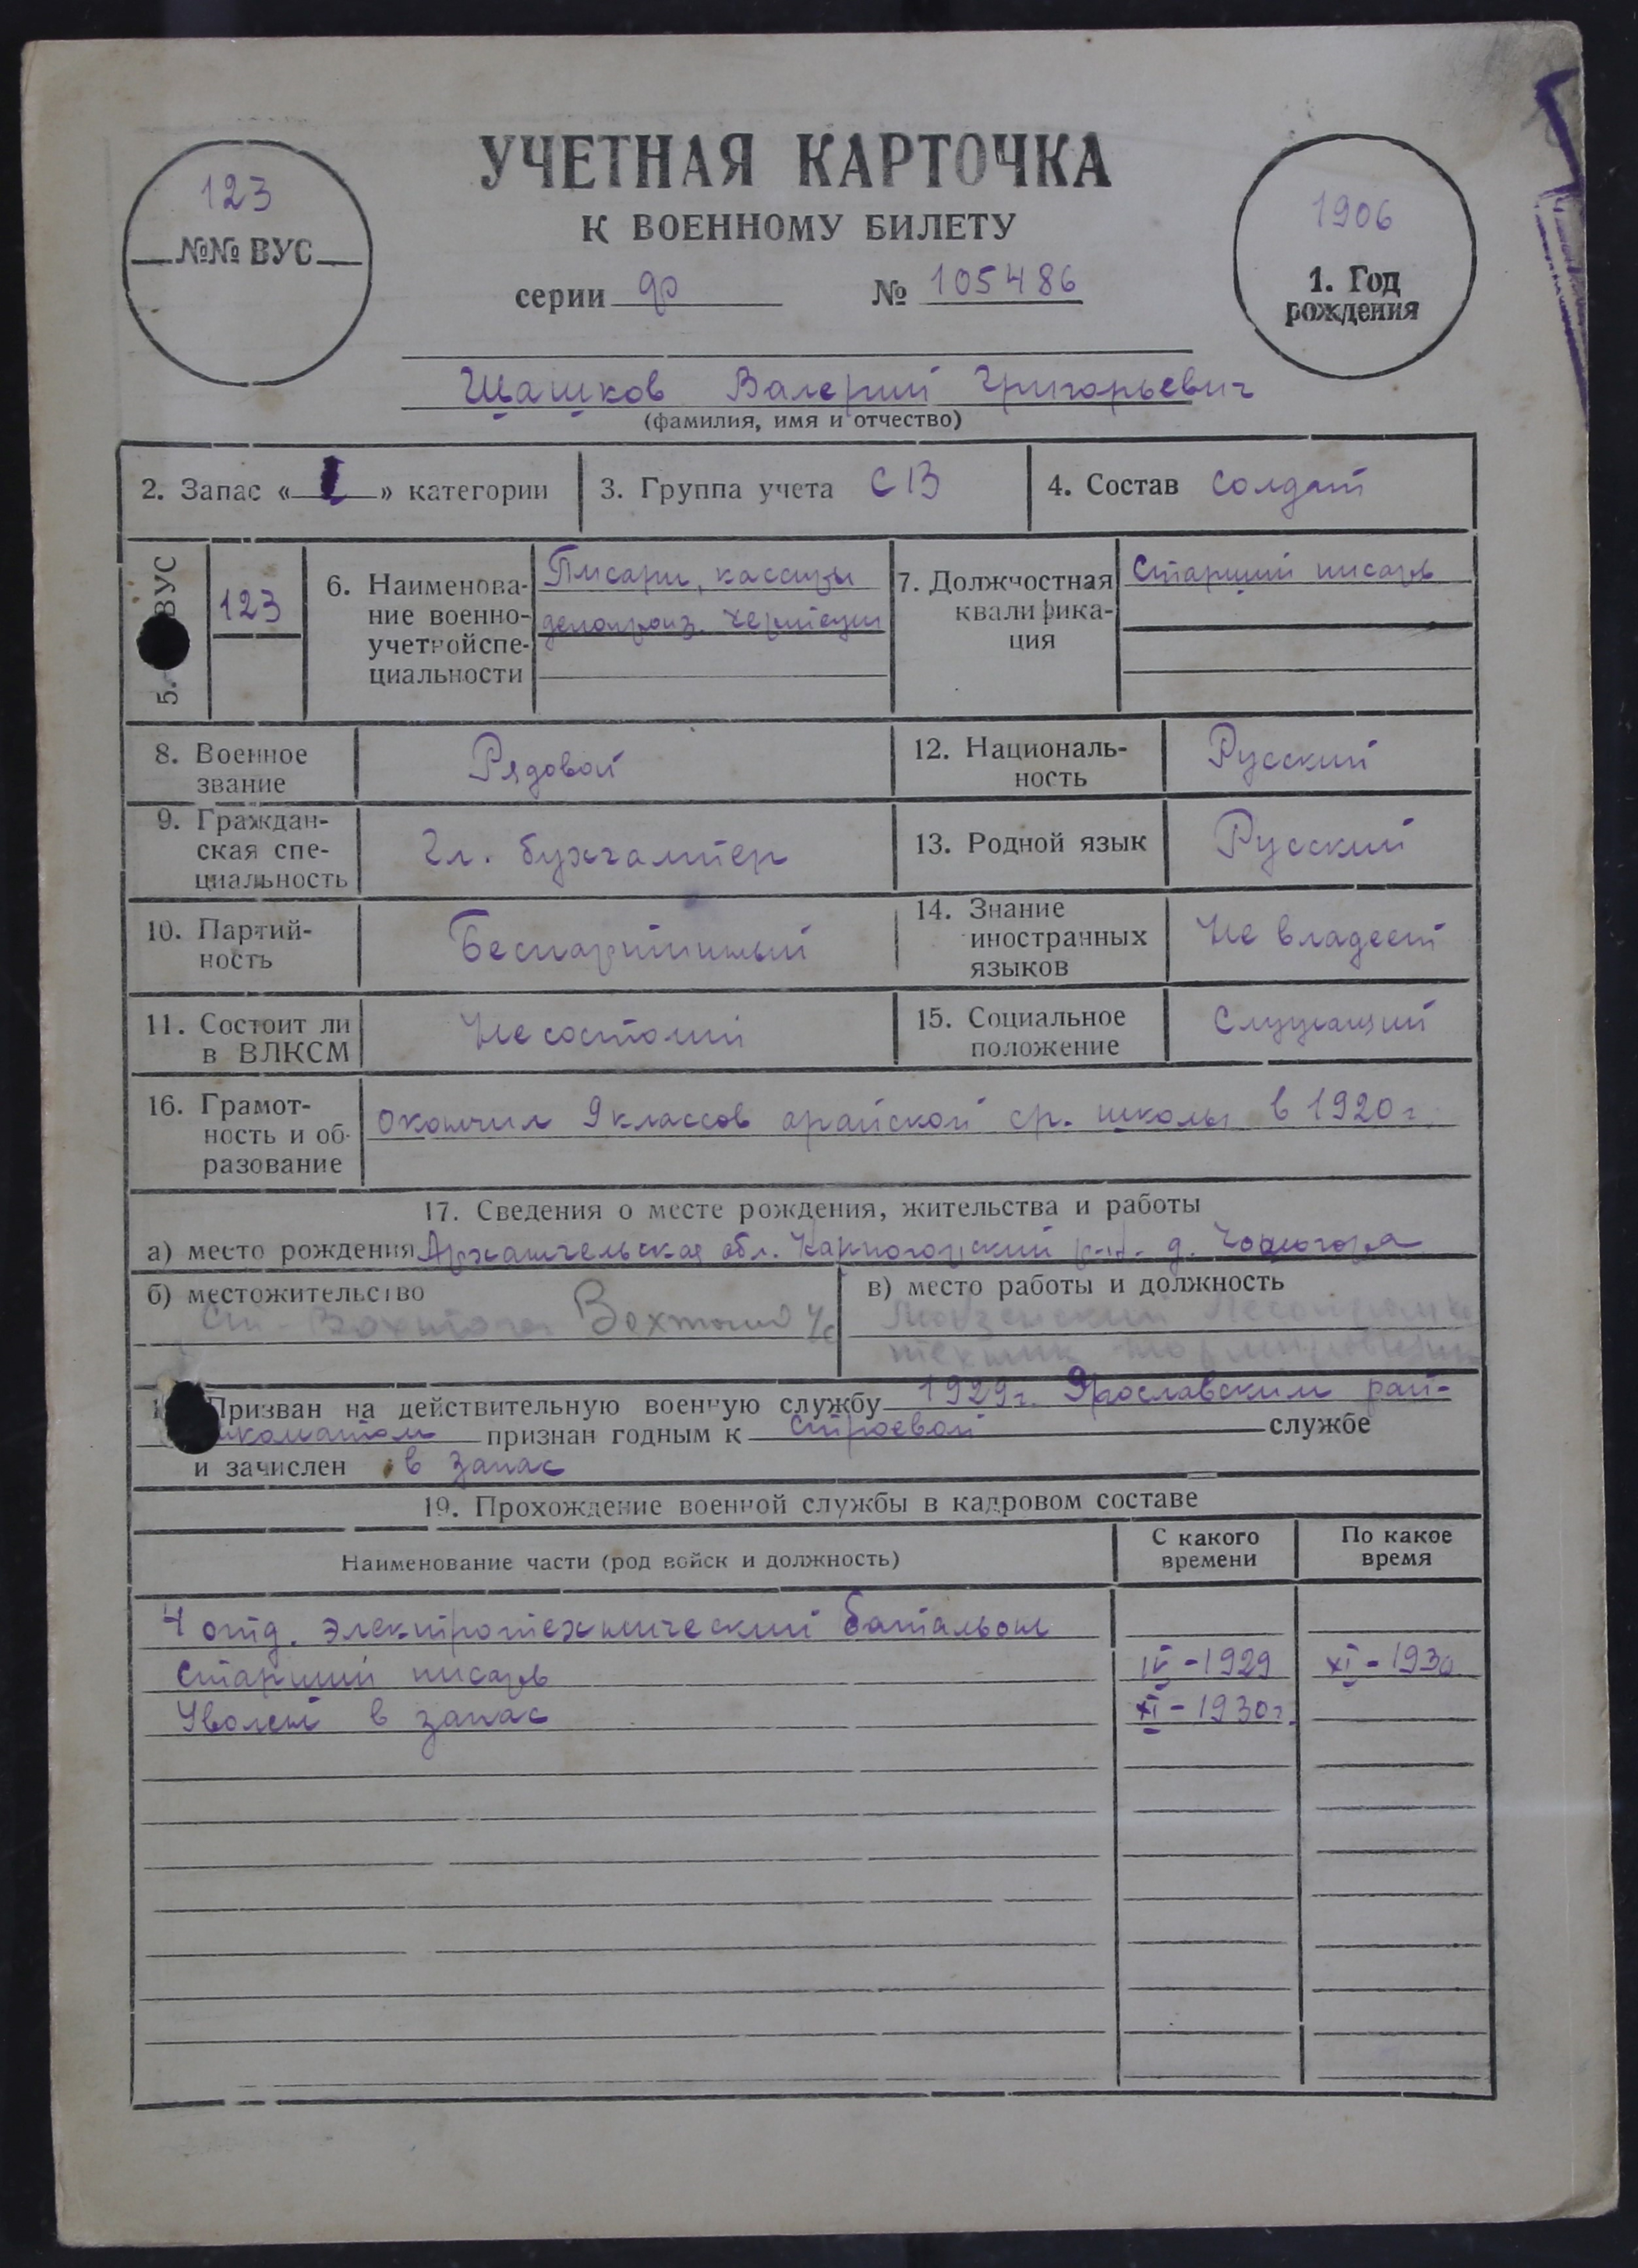 УЧЕТНАЯ КАРТОЧКА
К ВОЕННОМУ БИЛЕТУ
123
№№ ВУС
серии ф № 105486
1906
1. Год
рождения
Шашков Валерий Григорьевич
(фамилия, имя и отчество)
2. Запас « » категории
3. Группа учета СВ
4. Состав Солдат
5. ВУС
123
6. Наименова-
ние военно-
учетной спе-
циальности
Писари, кассиры
делопроиз. чертежн
7. Должностная
квалифика-
ция
Старший писарь
8. Военное
звание
Рядовой
12. Националь-
ность
Русский
9. Граждан-
ская спе-
циальность
Гл. бухгалтер
13. Родной язык
Русский
10. Партий-
ность
Беспартийный
14. Знание
иностранных
языков
Не владеет
11. Состоит ли
в ВЛКСМ
Не состоит
15. Социальное
положение
Служащий
16. Грамот-
ность и об-
разование
Окончил 9 классов ср. школы в 1920 г.
17. Сведения о месте рождения, жительства и работы
а) место рождения Архангельская обл. Карпогорский р-н. д.
б) местожительство
ст. Вохтога
в) место работы и должность
техник
Призван на действительную военную службу 1929 г. Ярославским рай-
признан годным к строевой службе
и зачислен в запас
19. Прохождение военной службы в кадровом составе
Наименование части (род войск и должность)
С какого
времени
По какое
время
4 отд. электротехнический батальон
Старший писарь IV-1929 XI-1930
Уволен в запас XI-1930 г.